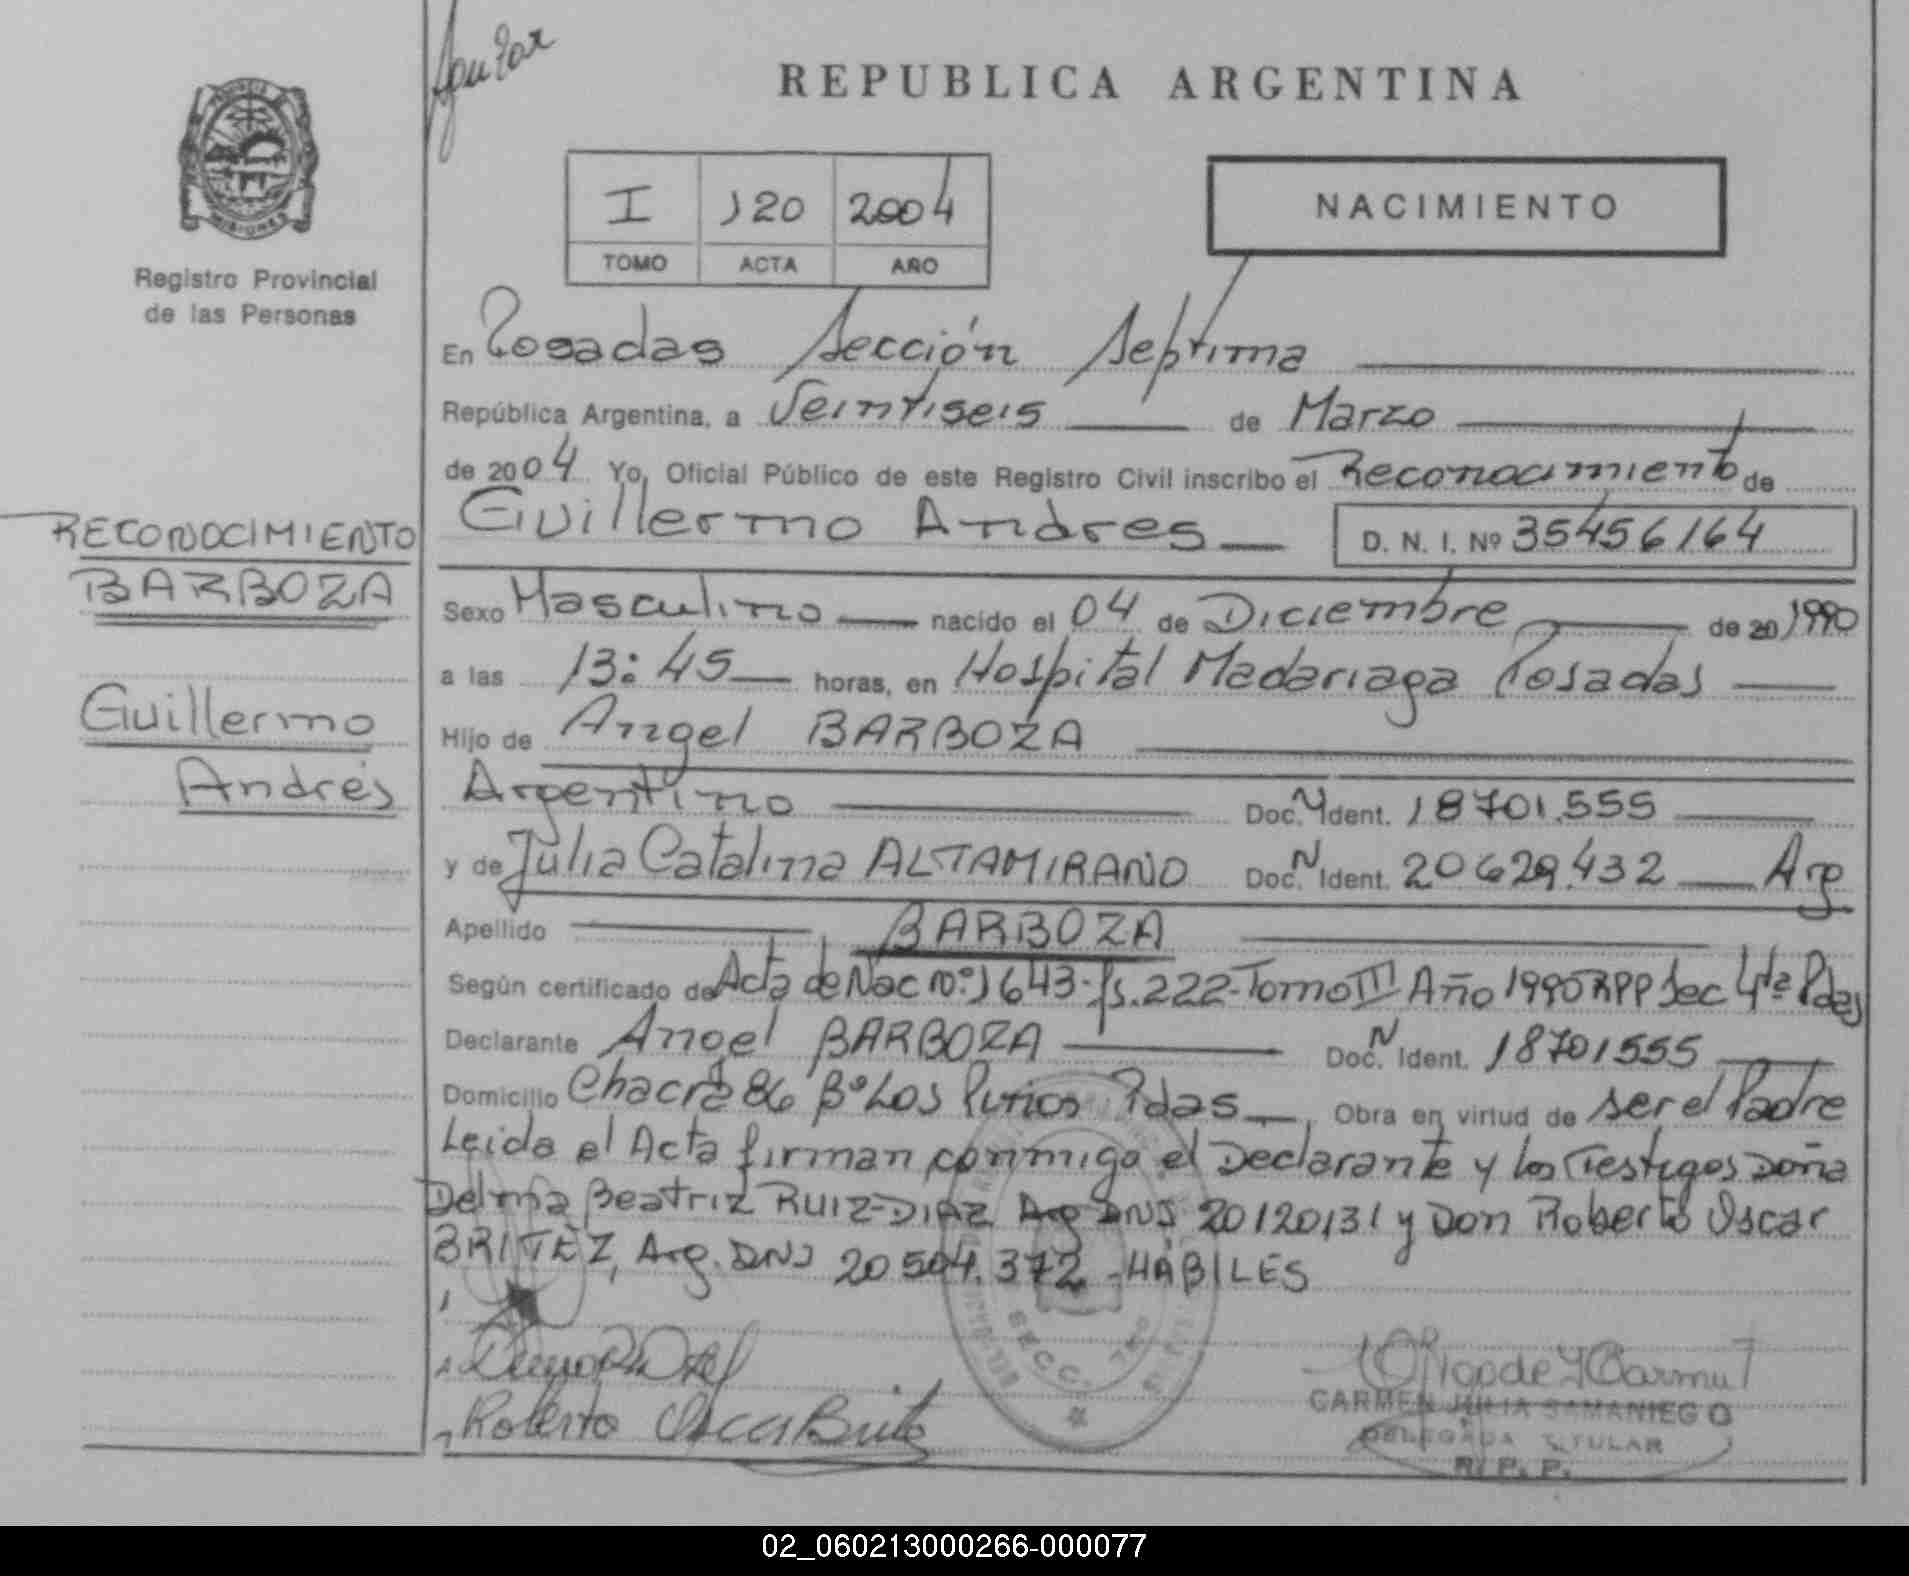 REPUBLICA ARGENTINA
PROVINCIA DE MISIONES
Registro Provincial
de las Personas
I 120 2004
TOMO ACTA AÑO
NACIMIENTO
En Posadas Sección Septima
República Argentina, a Veintiseis de Marzo
de 2004 Yo, Oficial Público de este Registro Civil inscribo el Reconocimiento de
Guillermo Andres D. N. I. Nº 35456164
RECONOCIMIENTO
BARBOZA
Guillermo
Andrés
Sexo Masculino nacido el 04 de Diciembre de 20 1990
a las 13:45 horas, en Hospital Madariaga Posadas
Hijo de Angel BARBOZA
Argentino Doc. N Ident. 18701.555
y de Julia Catalina ALTAMIRANO Doc. N Ident. 20629.432 Arg
Apellido BARBOZA
Según certificado de Acta de Nac nº 1643-fs.222-Tomo III Año 1990 RPP Sec 4ta Pdas
Declarante Angel BARBOZA Doc. N Ident. 18701555
Domicilio Chacra 86 Bº Los Pinos Pdas Obra en virtud de ser el Padre
Leida el Acta firman conmigo el Declarante y los Testigos Doña
Delma Beatriz RUIZ-DIAZ Arg DNI 20120131 y Don Roberto Oscar
BRITEZ, Arg. DNI 20504.372 - HÁBILES
SECC. 7ma
Roberto Oscar Britez
CARMEN JULIA SAMANIEGO
DELEGADA TITULAR
R. P. P.
02_060213000266-000077